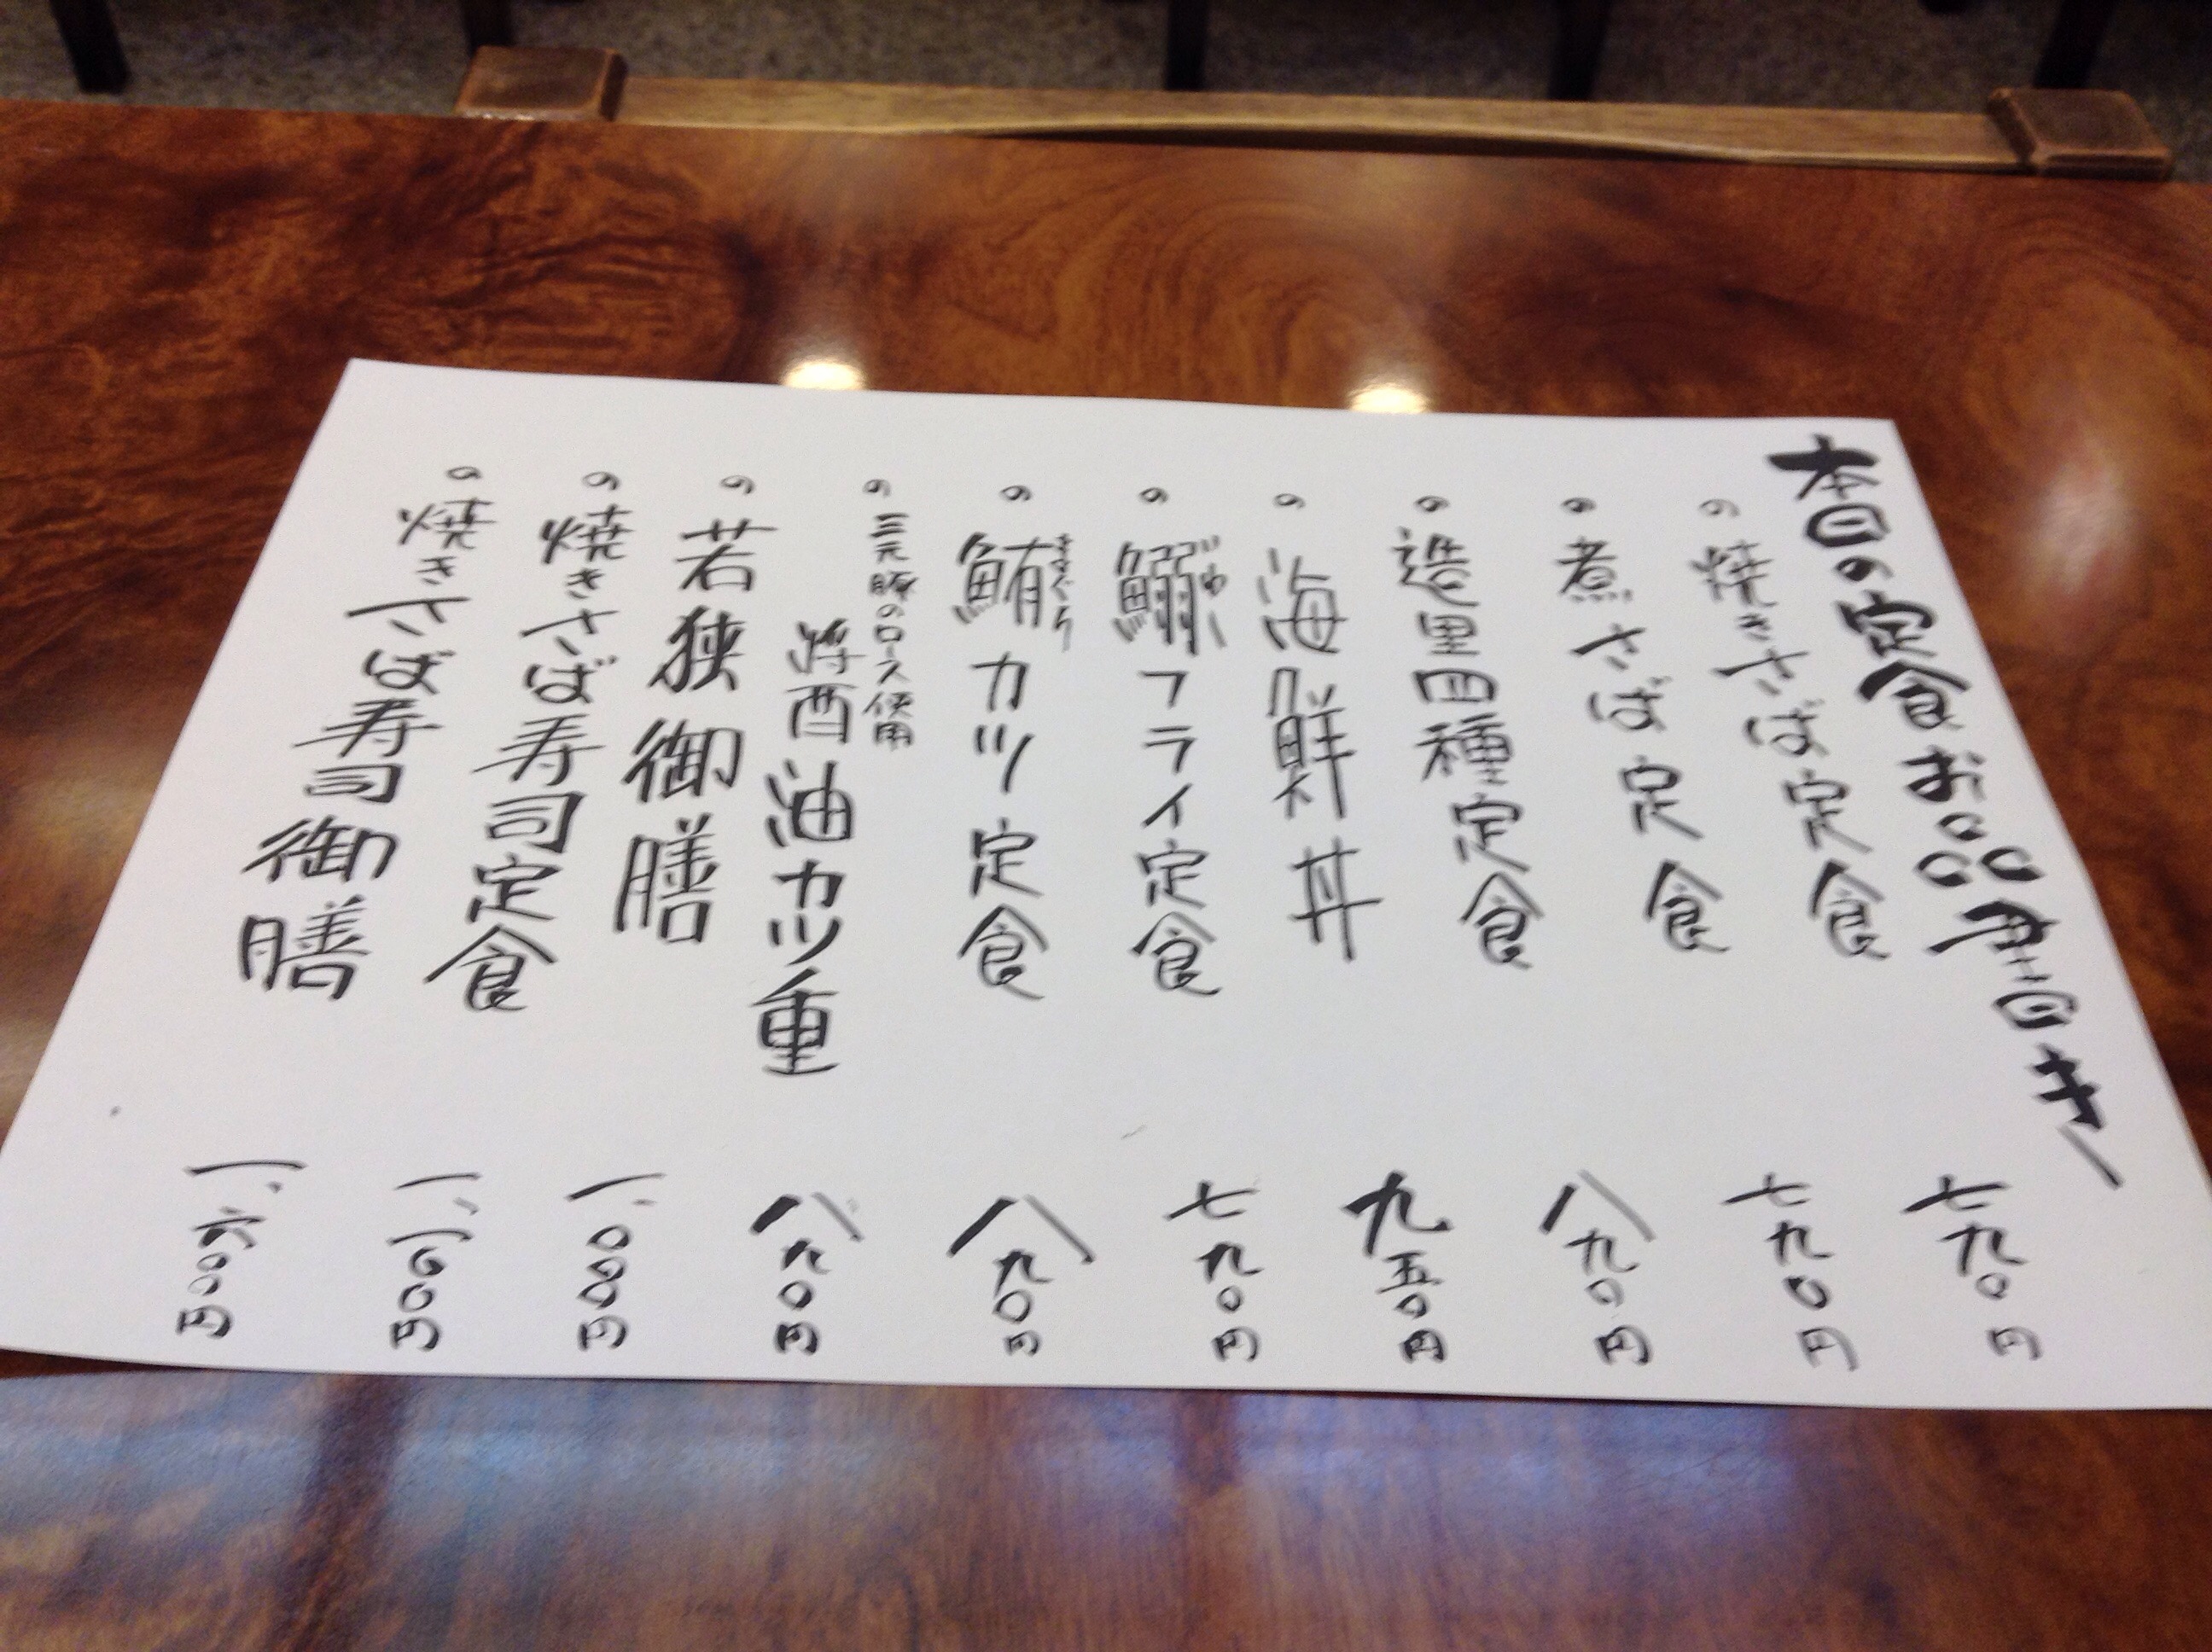 本日の定食お品書き
。焼きさば定食 七九〇円
。煮さば定食 七九〇円
。造里四種定食 八九〇円
。海鮮丼 九五〇円
。鰯フライ定食 七九〇円
。鮪カツ定食 八九〇円
。三元豚のロース使用
醤油カツ重 八九〇円
。若狭御膳 一、〇〇〇円
。焼きさば寿司定食
。焼きさば寿司御膳 一、六〇〇円